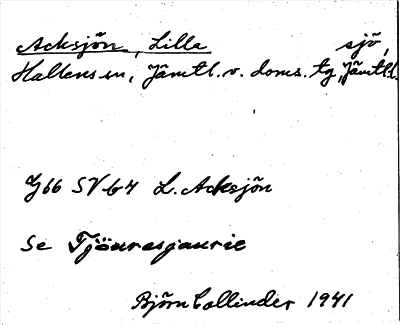 Acksjön, Lilla sjö,
Hallens sn, Jämtl. v. doms. tg, Jämtl. l.
G66 SV b4 L. Acksjön
Se Tjåuresjaurie
Björn Collinder 1941